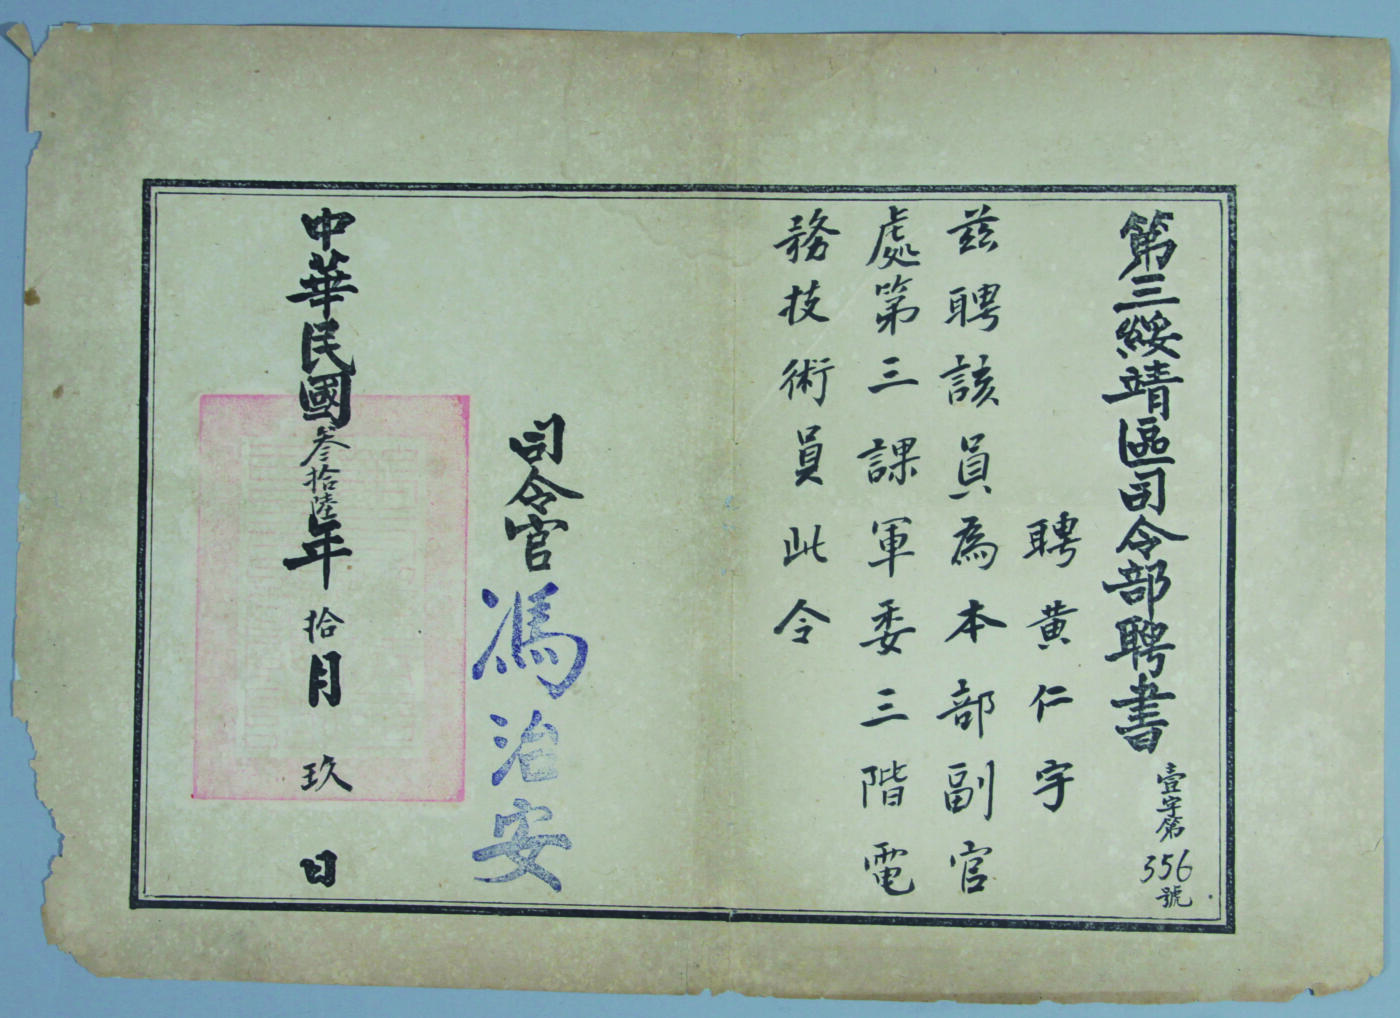 第三綏靖區司令部聘書
壹字第356號
聘黄仁宇
茲聘該員為本部副官
處第三課軍委三階電
務技術員此令
司令官馮治安
中華民國叁拾陸年拾月玖日